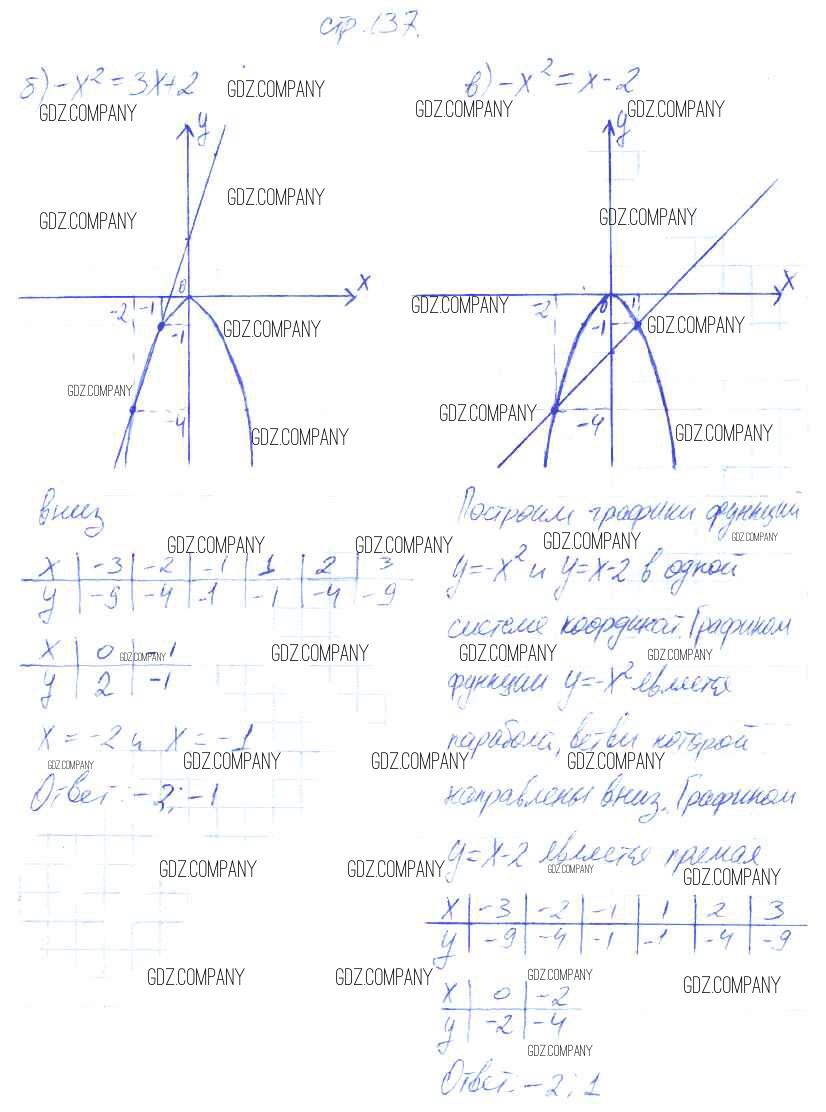 стр. 137.
б) -x² = 3x+2
GDZ.COMPANY
GDZ.COMPANY
y
GDZ.COMPANY
GDZ.COMPANY
0
x
-2 -1
-1
GDZ.COMPANY
GDZ.COMPANY
-4
GDZ.COMPANY
вниз
GDZ.COMPANY
GDZ.COMPANY
x -3 -2 -1 1 2 3
y -9 -4 -1 -1 -4 -9
x 0 -1
GDZ.COMPANY
GDZ.COMPANY
y 2 -1
x = -2 и x = -1
GDZ.COMPANY
GDZ.COMPANY
GDZ.COMPANY
Ответ: -2; -1
GDZ.COMPANY
GDZ.COMPANY
GDZ.COMPANY
GDZ.COMPANY
в) -x² = x-2
GDZ.COMPANY
GDZ.COMPANY
y
GDZ.COMPANY
x
GDZ.COMPANY
0
-2
1
-1
GDZ.COMPANY
GDZ.COMPANY
-4
GDZ.COMPANY
Построим графики функций
GDZ.COMPANY
GDZ.COMPANY
y=-x² и y=x-2 в одной
системе координат. Графиком
GDZ.COMPANY
GDZ.COMPANY
функции y=-x² является
парабола, ветви которой
GDZ.COMPANY
направлены вниз. Графиком
y=x-2 является прямая
GDZ.COMPANY
GDZ.COMPANY
x -3 -2 -1 1 2 3
y -9 -4 -1 -1 -4 -9
GDZ.COMPANY
GDZ.COMPANY
x 0 -2
y -2 -4
GDZ.COMPANY
Ответ: -2; 1